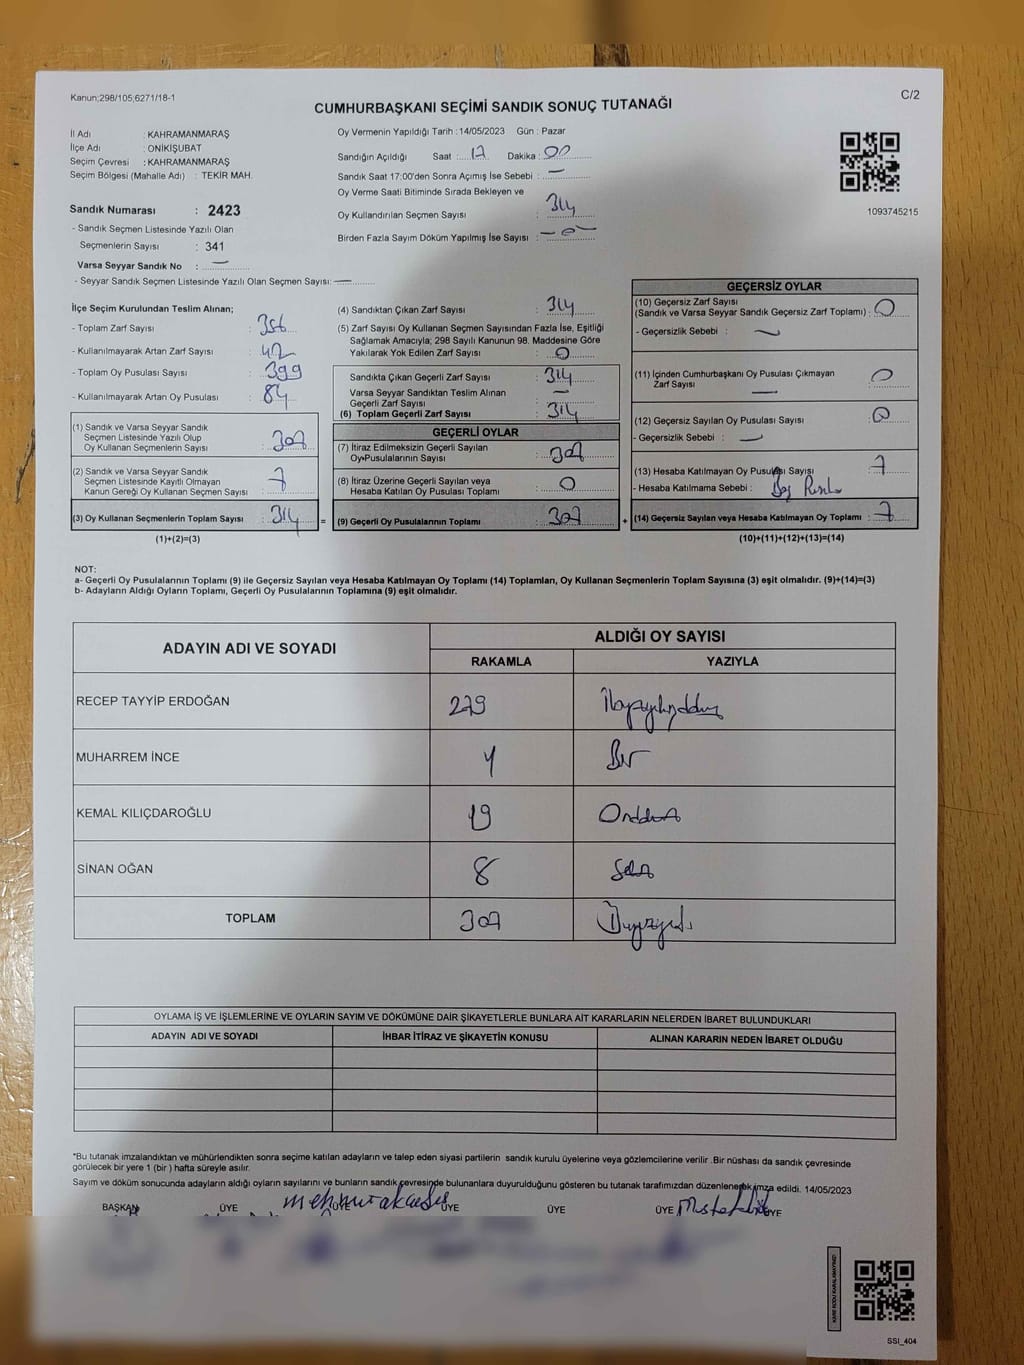 Kanun;298/105;6271/18-1
C/2
CUMHURBAŞKANI SEÇİMİ SANDIK SONUÇ TUTANAĞI
İl Adı : KAHRAMANMARAŞ
İlçe Adı : ONİKİŞUBAT
Seçim Çevresi : KAHRAMANMARAŞ
Seçim Bölgesi (Mahalle Adı) : TEKİR MAH.
Sandık Numarası : 2423
- Sandık Seçmen Listesinde Yazılı Olan
Seçmenlerin Sayısı : 341
Varsa Seyyar Sandık No : —
- Seyyar Sandık Seçmen Listesinde Yazılı Olan Seçmen Sayısı: —
Oy Vermenin Yapıldığı Tarih : 14/05/2023 Gün : Pazar
Sandığın Açıldığı Saat : 17 Dakika : 00
Sandık Saat 17:00'den Sonra Açımış İse Sebebi : —
Oy Verme Saati Bitiminde Sırada Bekleyen ve
Oy Kullandırılan Seçmen Sayısı : 314
Birden Fazla Sayım Döküm Yapılmış İse Sayısı : — 0 —
1093745215
İlçe Seçim Kurulundan Teslim Alınan;
- Toplam Zarf Sayısı : 356
- Kullanılmayarak Artan Zarf Sayısı : 42
- Toplam Oy Pusulası Sayısı : 399
- Kullanılmayarak Artan Oy Pusulası : 84
(1) Sandık ve Varsa Seyyar Sandık
Seçmen Listesinde Yazılı Olup
Oy Kullanan Seçmenlerin Sayısı : 307
(2) Sandık ve Varsa Seyyar Sandık
Seçmen Listesinde Kayıtlı Olmayan
Kanun Gereği Oy Kullanan Seçmen Sayısı : 7
(3) Oy Kullanan Seçmenlerin Toplam Sayısı : 314 =
(1)+(2)=(3)
(4) Sandıktan Çıkan Zarf Sayısı : 314
(5) Zarf Sayısı Oy Kullanan Seçmen Sayısından Fazla İse, Eşitliği
Sağlamak Amacıyla; 298 Sayılı Kanunun 98. Maddesine Göre
Yakılarak Yok Edilen Zarf Sayısı : 0
Sandıkta Çıkan Geçerli Zarf Sayısı : 314
Varsa Seyyar Sandıktan Teslim Alınan
Geçerli Zarf Sayısı : —
(6) Toplam Geçerli Zarf Sayısı : 314
GEÇERLİ OYLAR
(7) İtiraz Edilmeksizin Geçerli Sayılan
Oy Pusulalarının Sayısı : 307
(8) İtiraz Üzerine Geçerli Sayılan veya
Hesaba Katılan Oy Pusulası Toplamı : 0
(9) Geçerli Oy Pusulalarının Toplamı : 307 +
GEÇERSİZ OYLAR
(10) Geçersiz Zarf Sayısı
(Sandık ve Varsa Seyyar Sandık Geçersiz Zarf Toplamı) : 0
- Geçersizlik Sebebi : —
(11) İçinden Cumhurbaşkanı Oy Pusulası Çıkmayan
Zarf Sayısı : 0
—
(12) Geçersiz Sayılan Oy Pusulası Sayısı : 0
- Geçersizlik Sebebi : —
(13) Hesaba Katılmayan Oy Pusulası Sayısı : 7
- Hesaba Katılmama Sebebi :
(14) Geçersiz Sayılan veya Hesaba Katılmayan Oy Toplamı : 7
(10)+(11)+(12)+(13)=(14)
NOT:
a- Geçerli Oy Pusulalarının Toplamı (9) ile Geçersiz Sayılan veya Hesaba Katılmayan Oy Toplamı (14) Toplamları, Oy Kullanan Seçmenlerin Toplam Sayısına (3) eşit olmalıdır. (9)+(14)=(3)
b- Adayların Aldığı Oyların Toplamı, Geçerli Oy Pusulalarının Toplamına (9) eşit olmalıdır.
ADAYIN ADI VE SOYADI
ALDIĞI OY SAYISI
RAKAMLA YAZIYLA
RECEP TAYYİP ERDOĞAN 279
MUHARREM İNCE 1 Bir
KEMAL KILIÇDAROĞLU 19
SİNAN OĞAN 8
TOPLAM 307
OYLAMA İŞ VE İŞLEMLERİNE VE OYLARIN SAYIM VE DÖKÜMÜNE DAİR ŞİKAYETLERLE BUNLARA AİT KARARLARIN NELERDEN İBARET BULUNDUKLARI
ADAYIN ADI VE SOYADI İHBAR İTİRAZ VE ŞİKAYETİN KONUSU ALINAN KARARIN NEDEN İBARET OLDUĞU
*Bu tutanak imzalandıktan ve mühürlendikten sonra seçime katılan adayların ve talep eden siyasi partilerin sandık kurulu üyelerine veya gözlemcilerine verilir .Bir nüshası da sandık çevresinde
görülecek bir yere 1 (bir ) hafta süreyle asılır.
Sayım ve döküm sonucunda adayların aldığı oyların sayılarını ve bunların sandık çevresinde bulunanlara duyurulduğunu gösteren bu tutanak tarafımızdan düzenlenerek imza edildi. 14/05/2023
BAŞKAN ÜYE ÜYE ÜYE ÜYE ÜYE ÜYE
KARE KODU KARALAMAYINIZ!
SSI_404